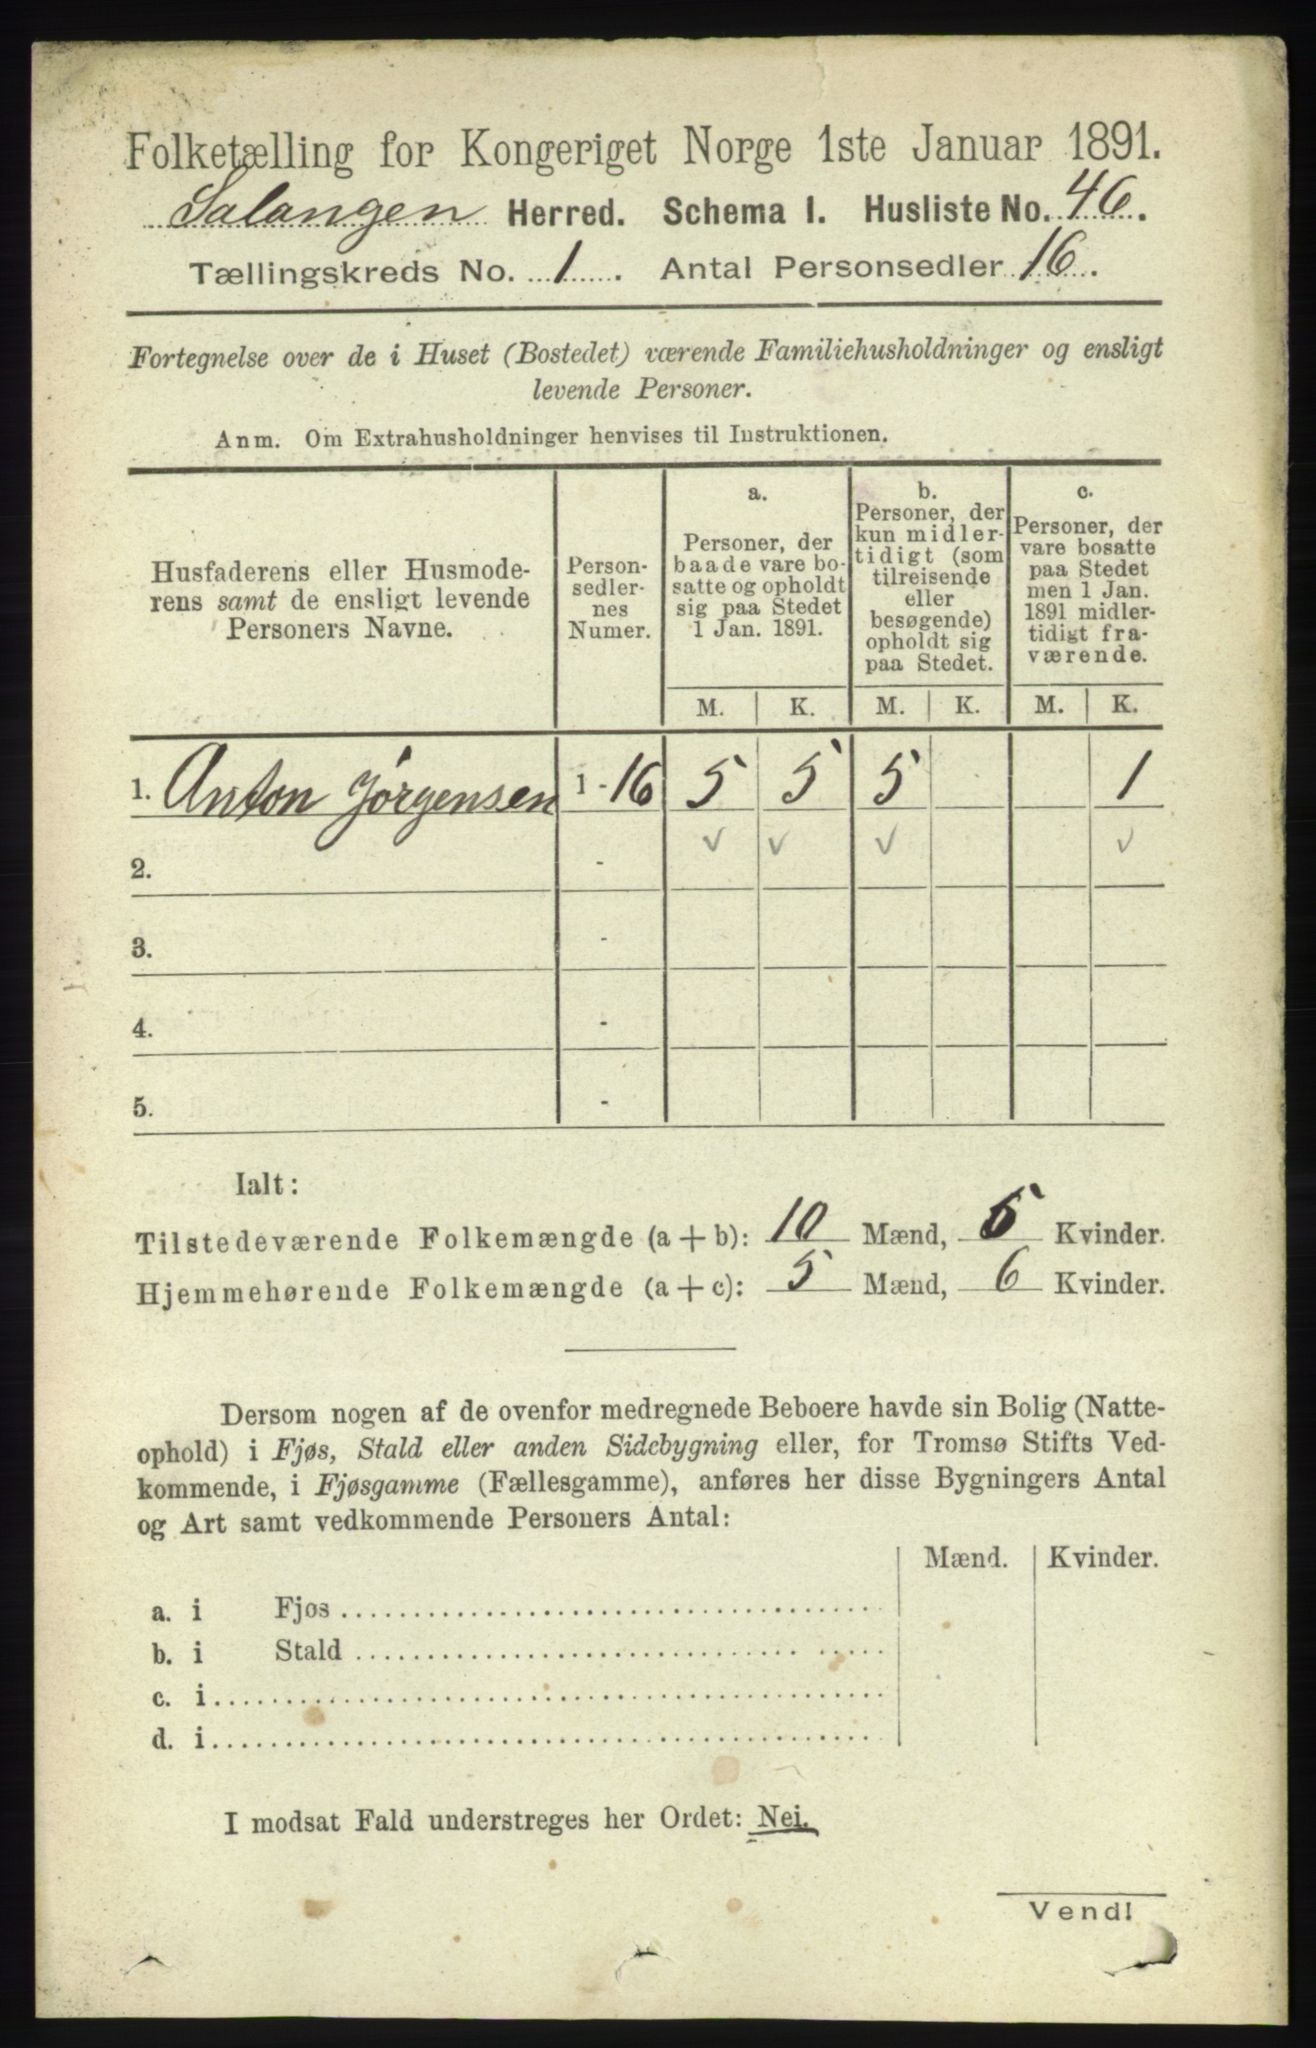 Folketælling for Kongeriget Norge 1ste Januar 1891.
Salangen Herred. Schema I. Husliste No. 46.
Tællingskreds No. 1. Antal Personsedler 16.
Fortegnelse over de i Huset (Bostedet) værende Familiehusholdninger og ensligt
levende Personer.
Anm. Om Extrahusholdninger henvises til Instruktionen.
Husfaderens eller Husmode-
rens samt de ensligt levende
Personers Navne.
Person-
sedler-
nes
Numer.
a.
Personer, der
baade vare bo-
satte og opholdt
sig paa Stedet
1 Jan. 1891.
b.
Personer, der
kun midler-
tidigt (som
tilreisende
eller
besøgende)
opholdt sig
paa Stedet.
c.
Personer, der
vare bosatte
paa Stedet
men 1 Jan.
1891 midler-
tidigt fra-
værende.
M. K. M. K. M. K.
1. Anton Jørgensen 1-16 5 5 5 1
2. - ✓ ✓ ✓ ✓
3. -
4. -
5. -
Ialt:
Tilstedeværende Folkemængde (a + b): 10 Mænd, 5 Kvinder.
Hjemmehørende Folkemængde (a + c): 5 Mænd, 6 Kvinder.
Dersom nogen af de ovenfor medregnede Beboere havde sin Bolig (Natte-
ophold) i Fjøs, Stald eller anden Sidebygning eller, for Tromsø Stifts Ved-
kommende, i Fjøsgamme (Fællesgamme), anføres her disse Bygningers Antal
og Art samt vedkommende Personers Antal:
Mænd. Kvinder.
a. i Fjøs
b. i Stald
c. i
d. i
I modsat Fald understreges her Ordet: Nei.
Vend!